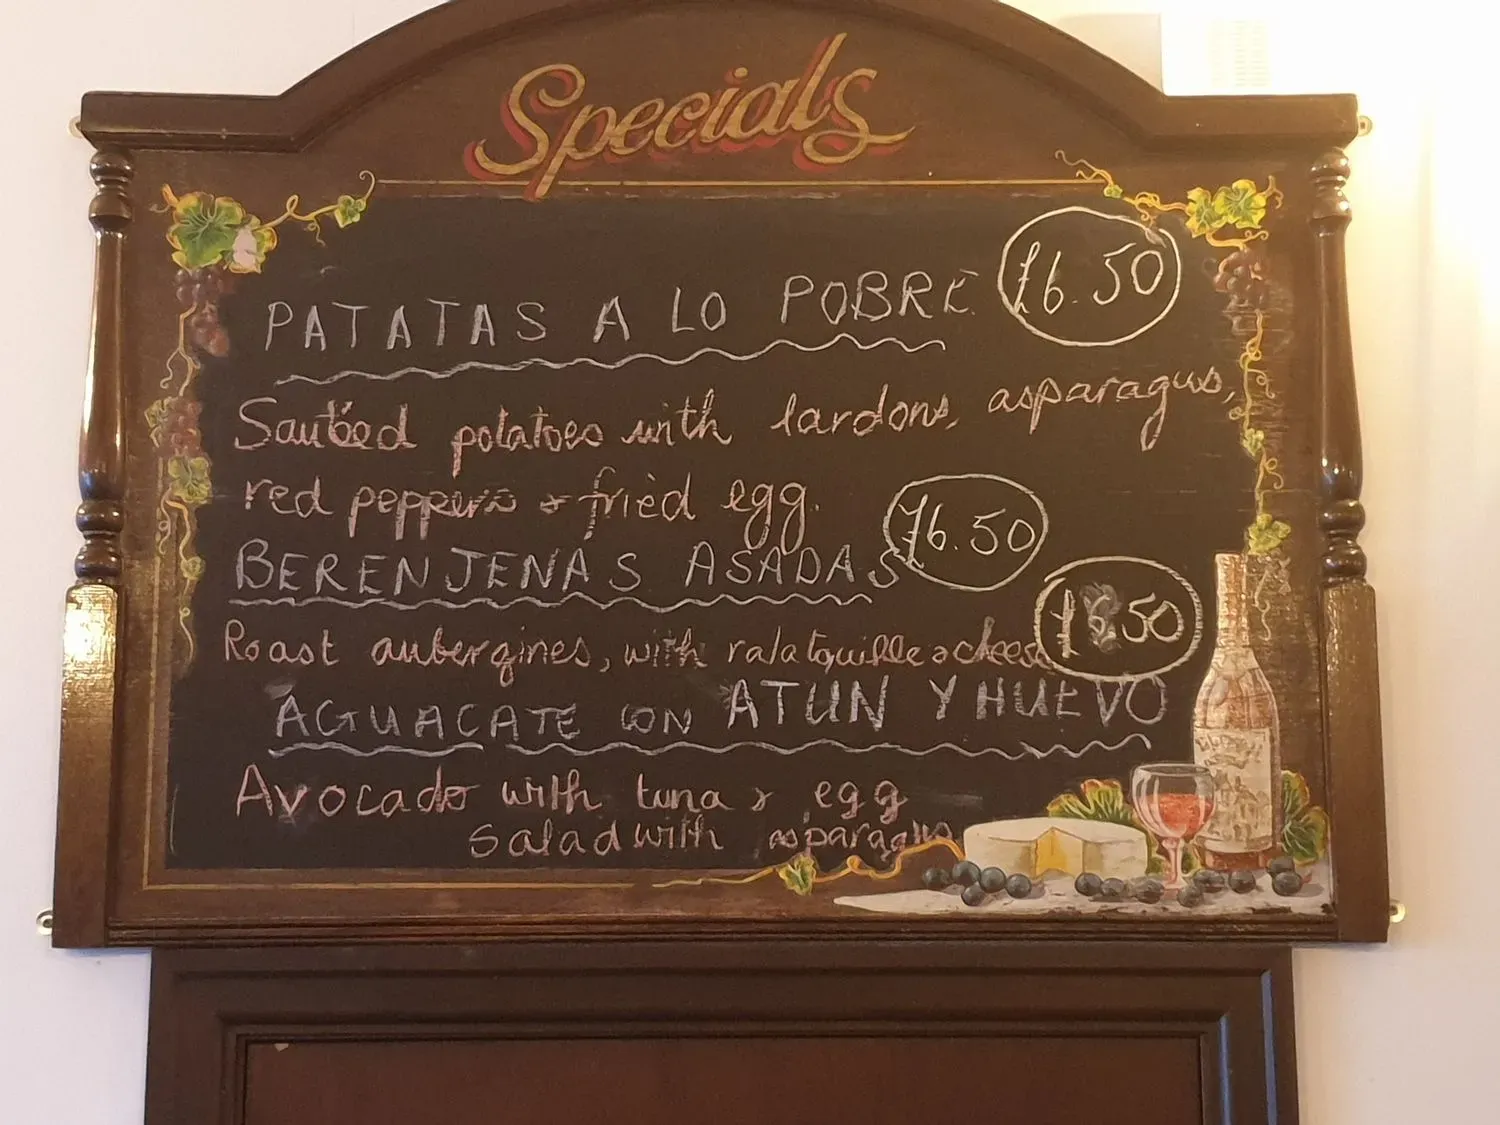 Specials
PATATAS A LO POBRE £6.50
Sautéed potatoes with lardons, asparagus,
red peppers & fried egg.
BERENJENAS ASADAS £6.50
Roast aubergines, with ratatouille & cheese
AGUACATE CON ATUN Y HUEVO
Avocado with tuna & egg
salad with asparagus